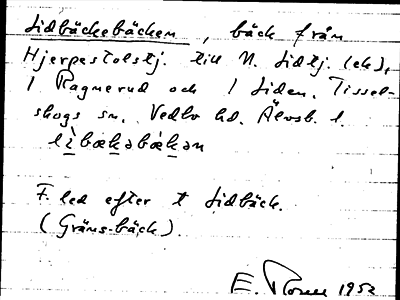 Lidbäckebäcken, bäck från
Hjerpestolstj. till N. Lidtj. (ek),
1 Ragnerud och 1 Liden. Tissel-
skogs sn. Vedbo hd. Älvsb. l.
lìbækəbækən
F. led efter t Lidbäck.
(Gräns-bäck).
E. 1952